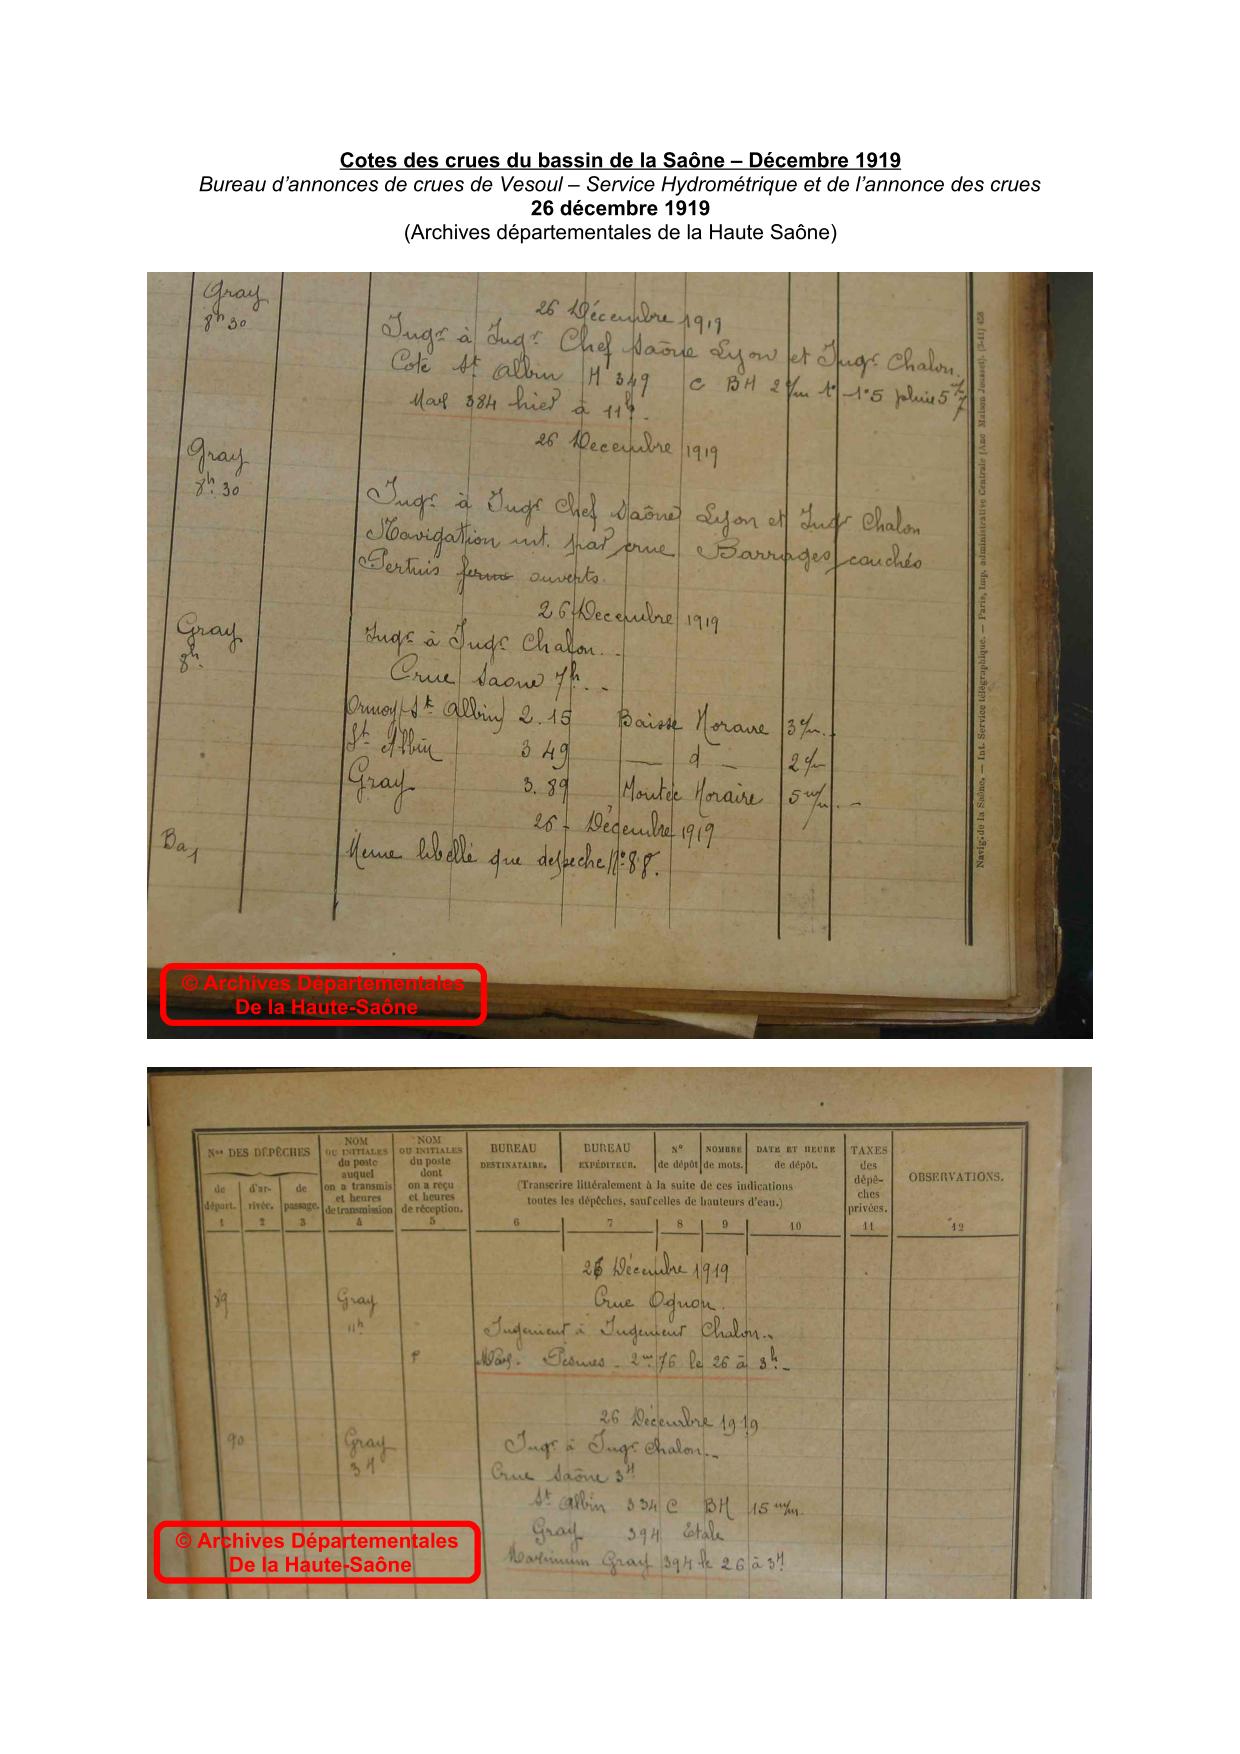 Cotes des crues du bassin de la Saône – Décembre 1919
Bureau d'annonces de crues de Vesoul – Service Hydrométrique et de l'annonce des crues
26 décembre 1919
(Archives départementales de la Haute Saône)
Gray
8h 30
26 Décembre 1919
Ingr à Ingr Chef Saône Lyon et Ingr Chalon.
Cote St Albin H 349 C BH 2 c/m 1° -1°5 pluie 5
Max 384 hier à 11h.
26 Decembre 1919
Gray
8h. 30
Ingr à Ingr Chef Saône Lyon et Ingr Chalon
Navigation int. par crue Barrages couchés
Pertuis fermé ouverts.
26 Decembre 1919
Gray
8h.
Ingr à Ingr Chalon..
Crue Saone 7h...
Ormoy (St Albin) 2.15 Baisse Horaire 3 c/m.
St Albin 3 49 — d — 2 c/m
Gray 3.89 Montée Horaire 5 m/m. -
26 - Décembre 1919
Meme libellé que despeche N° 88.
Navig. de la Saône. — Int. Service télégraphique. — Paris, Imp. administrative Centrale (Anc Maison Jousset). (3-41) 458
© Archives Départementales
De la Haute-Saône
Nos DES DÉPÊCHES
de départ. 1
d'arrivée. 2
de passage. 3
NOM OU INITIALES du poste auquel on a transmis et heures de transmission 4
NOM OU INITIALES du poste dont on a reçu et heures de réception. 5
BUREAU DESTINATAIRE.
BUREAU EXPÉDITEUR.
N° de dépôt
NOMBRE de mots.
DATE ET HEURE de dépôt.
(Transcrire littéralement à la suite de ces indications
toutes les dépêches, sauf celles de hauteurs d'eau.)
6 7 8 9 10
TAXES des dépêches privées. 11
OBSERVATIONS. 12
26 Décembre 1919
89 Gray Crue Ognon.
11h Ingenieur à Ingenieur Chalon..
Max. Pesmes - 2m 76 le 26 à 3h. -
26 Décembre 1919
90 Gray Ingr à Ingr Chalon..
3H Crue Saône 3H
St Albin 334 C BH 15 m/m.
Gray 394 Etale
Maximum Gray 394 le 26 à 3H
© Archives Départementales
De la Haute-Saône